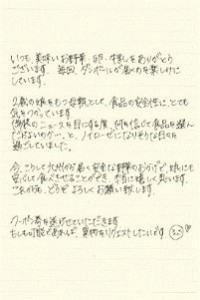 いつも美味しいお野菜、卵、牛乳をありがとう
ございます。毎回、ダンボールが届くのを楽しみに
しています。
2歳の娘をもつ母親として、食品の安全性に、とても
気をつかっています。
のニュースを目にする度、何を信じて食品を選ん
だらよいのか…と、ノイローゼになりそうな日々を
過ごしていました。
今、こうして九州から届く安全な野菜のおかげで、娘にも
安心して食べさせることができ、本当に嬉しく思います。
これからも、どうぞよろしくお願い致します。
クーポン券を送らせていただきます
もしも可能であれば、果物をリクエストしたいです。